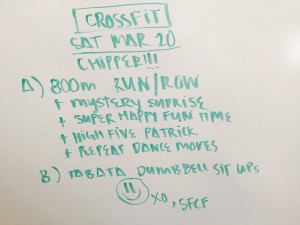 CROSSFIT
SAT MAR 20
CHIPPER!!!
A) 800m RUN/ROW
+ MYSTERY SUPRISE
+ SUPER HAPPY FUN TIME
+ HIGH FIVE PATRICK
+ REPEAT DANCE MOVES
B) TABATA DUMBBELL SIT UPS
XO, SFCF